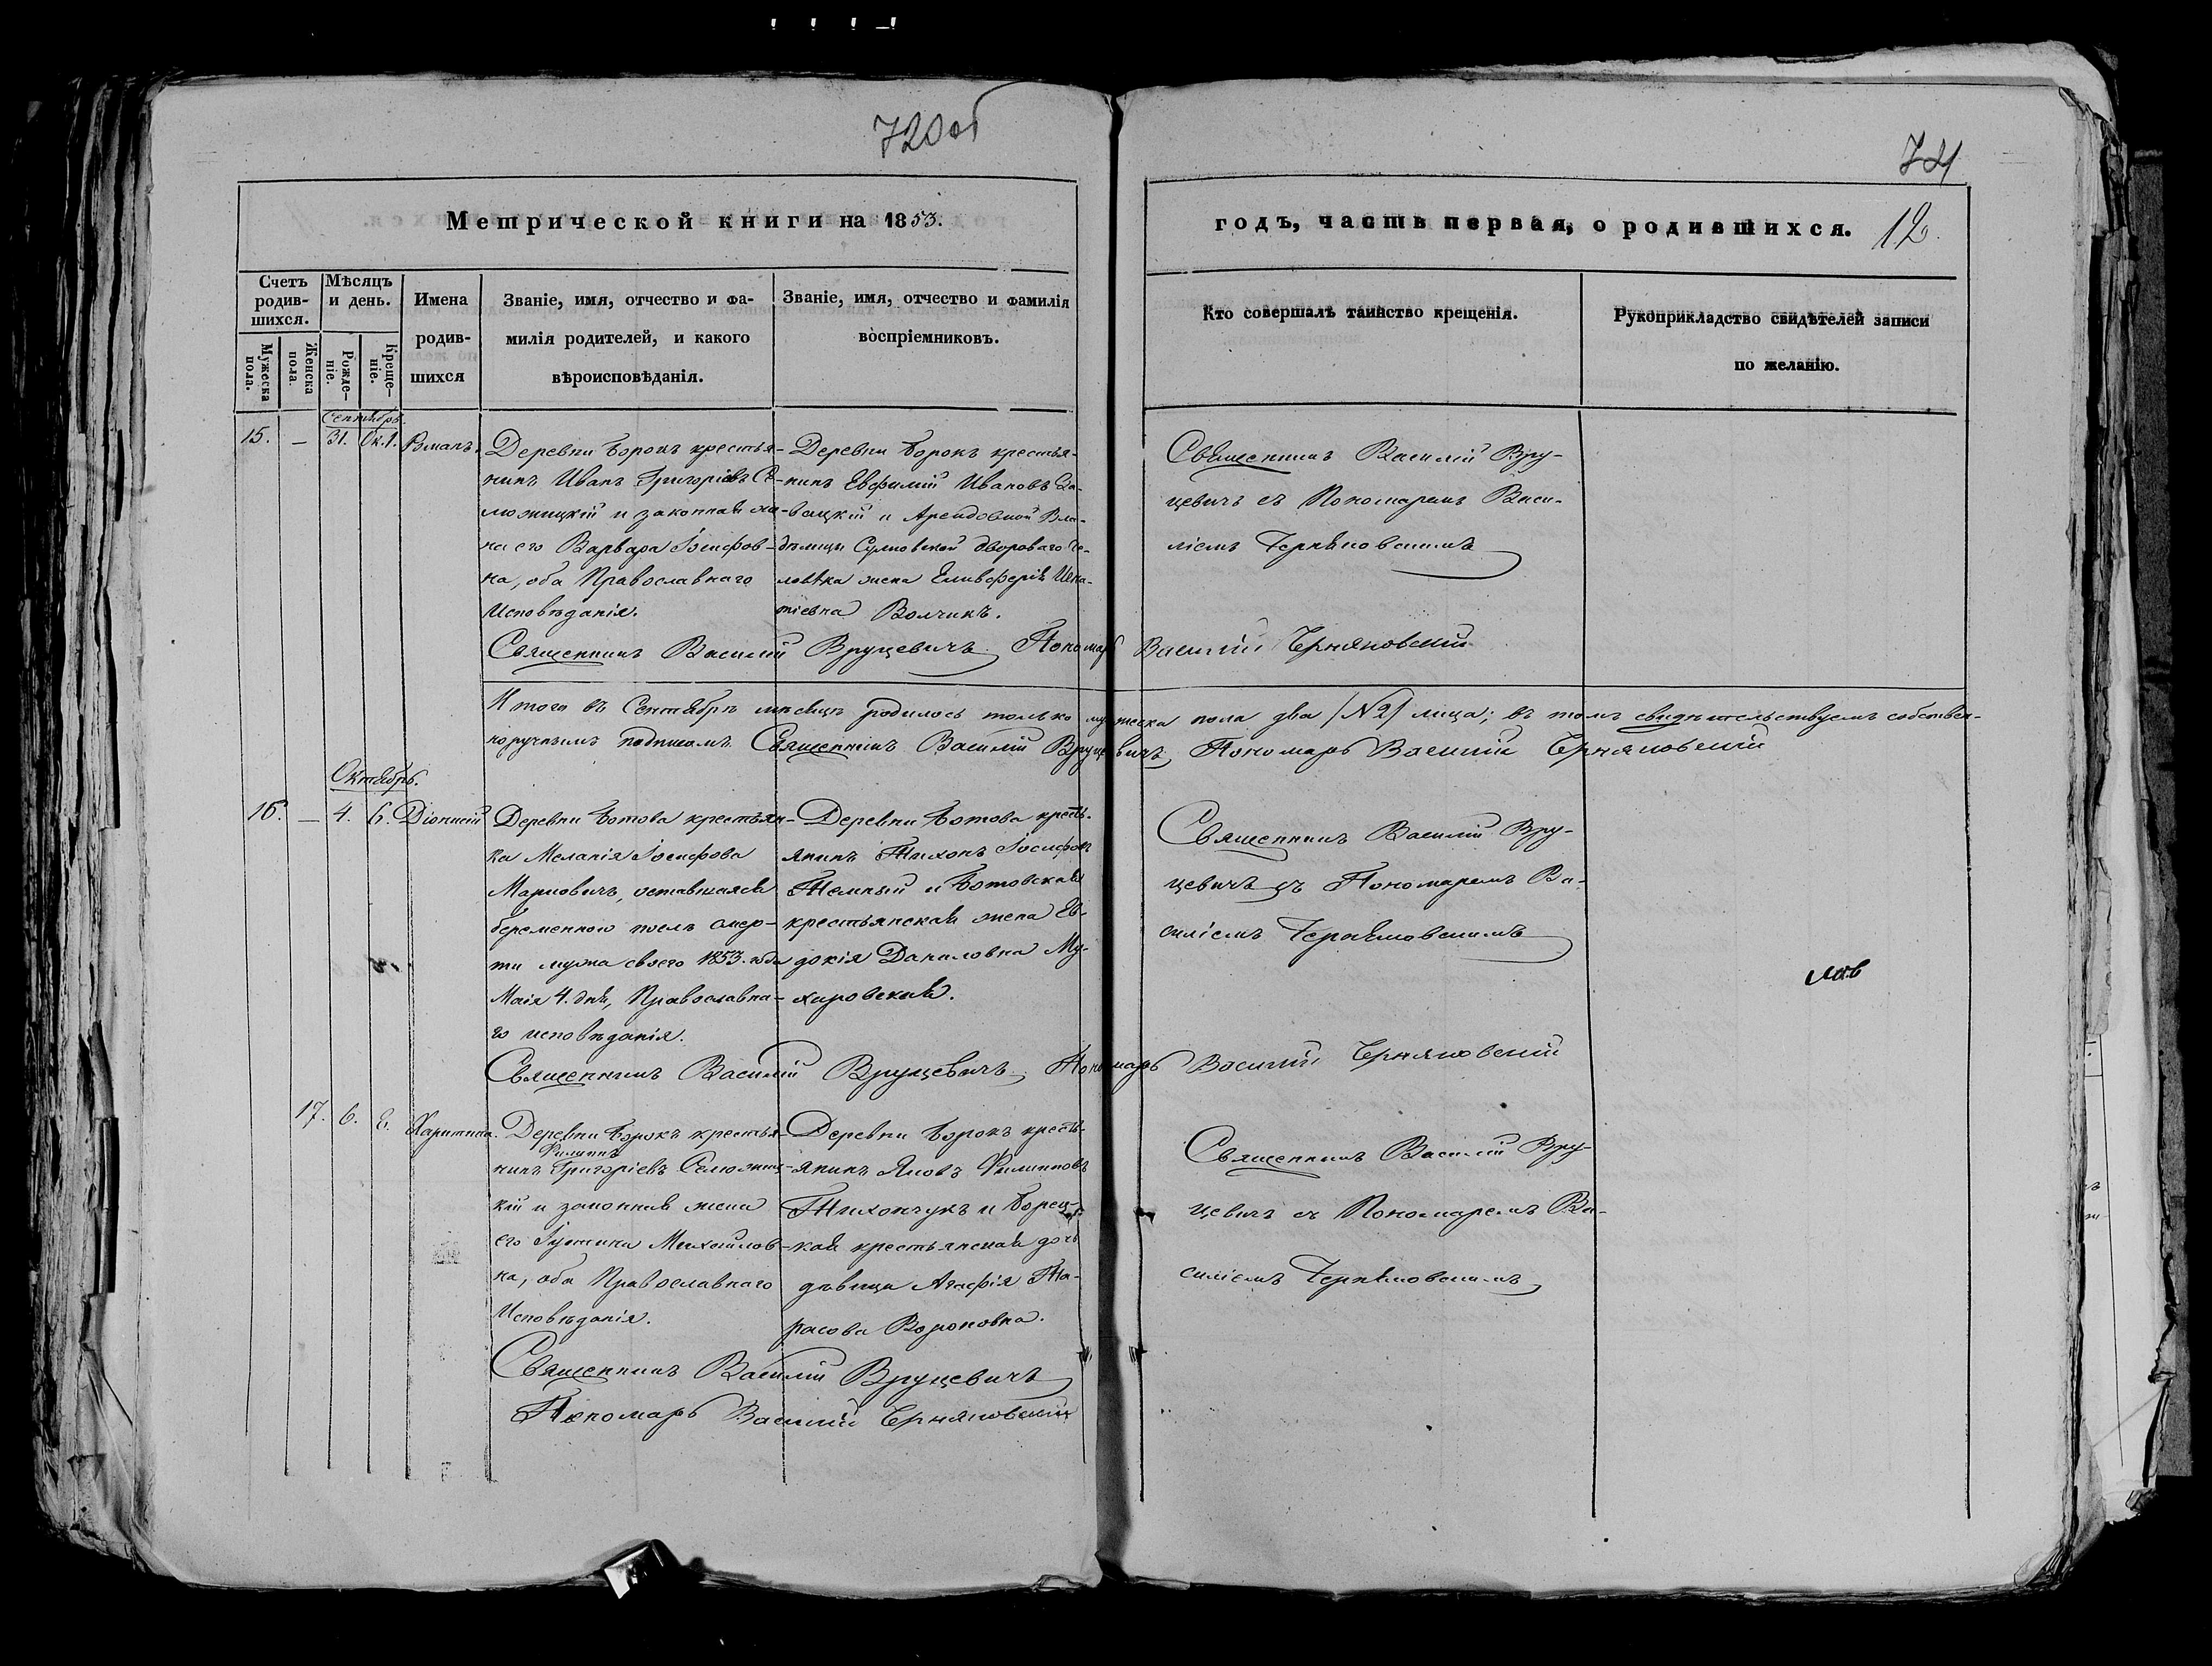 720об
721
Метрической книги на 1853.
годъ, часть первая, о родившихся.
12.
Счетъ родившихся.
Мѣсяцъ и день.
Мужеска пола.
Женска пола.
Рожде-ніе.
Креще-ніе.
Имена родив-шихся
Званіе, имя, отчество и фа-
милія родителей, и какого
вѣроисповѣданія.
Званіе, имя, отчество и фамилія
воспріемниковъ.
Кто совершалъ таинство крещенія.
Рукоприкладство свидѣтелей записи
по желанію.
Сентябрь.
15. — 31. Ок.1. Романъ.
Деревни Борокъ крестья-
нинъ Иванъ Григоріевъ Се-
люжицкій и законная же-
на его Варвара Іосифов-
на, оба Православнаго
Исповѣданія.
Деревни Борокъ крестья-
нинъ Евфимій Ивановъ
и Арендовной Вла-
дѣлицы двороваго че-
ловѣка жена Елисаферія Игна-
тіевна Волчикъ.
Священникъ Василій Вру-
цевичъ съ Пономаремъ Васи-
ліемъ Черняковскимъ
Священникъ Василій Вруцевичъ Пономарь Василій Черняковскій
Итого въ Сентябрѣ мѣсяцѣ родилось только мужеска пола два /№2/ лица; въ томъ свидѣтельствуемъ собствен-
норучнымъ подписомъ Священникъ Василій Вруцевичъ Пономарь Василій Черняковскій
Октябрь.
16. — 4. 6. Діонисій
Деревни Ботова крестьян-
ка Меланія Іосифова
Марковичъ, оставшаяся
беременною послѣ смер-
ти мужа своего 1853. года
Маія 4. дня, Православна-
го исповѣданія.
Деревни Ботова кресть-
янинъ Тихонъ Іосифовъ
Темный и Ботовская
крестьянская жена Ев-
докія Даниловна Му-
хировская.
Священникъ Василій Вру-
цевичъ съ Пономаремъ Ва-
силіемъ Черняковскимъ
Священникъ Василій Вруцевичъ Пономарь Василій Черняковскій
17. 6. 8. Харитина.
Деревни Борокъ крестья-
Филиппъ
нинъ Григоріевъ Селюжиц-
кій и законная жена
его Іустина Михайлов-
на, оба Православнаго
Исповѣданія.
Деревни Борокъ кресть-
янинъ Яковъ Филипповъ
Тихончукъ и Борец-
кая крестьянская дочь
дѣвица Агафія Та-
расова Вороновна.
Священникъ Василій Вру-
цевичъ съ Пономаремъ Ва-
силіемъ Черняковскимъ
Священникъ Василій Вруцевичъ
Пономарь Василій Черняковскій